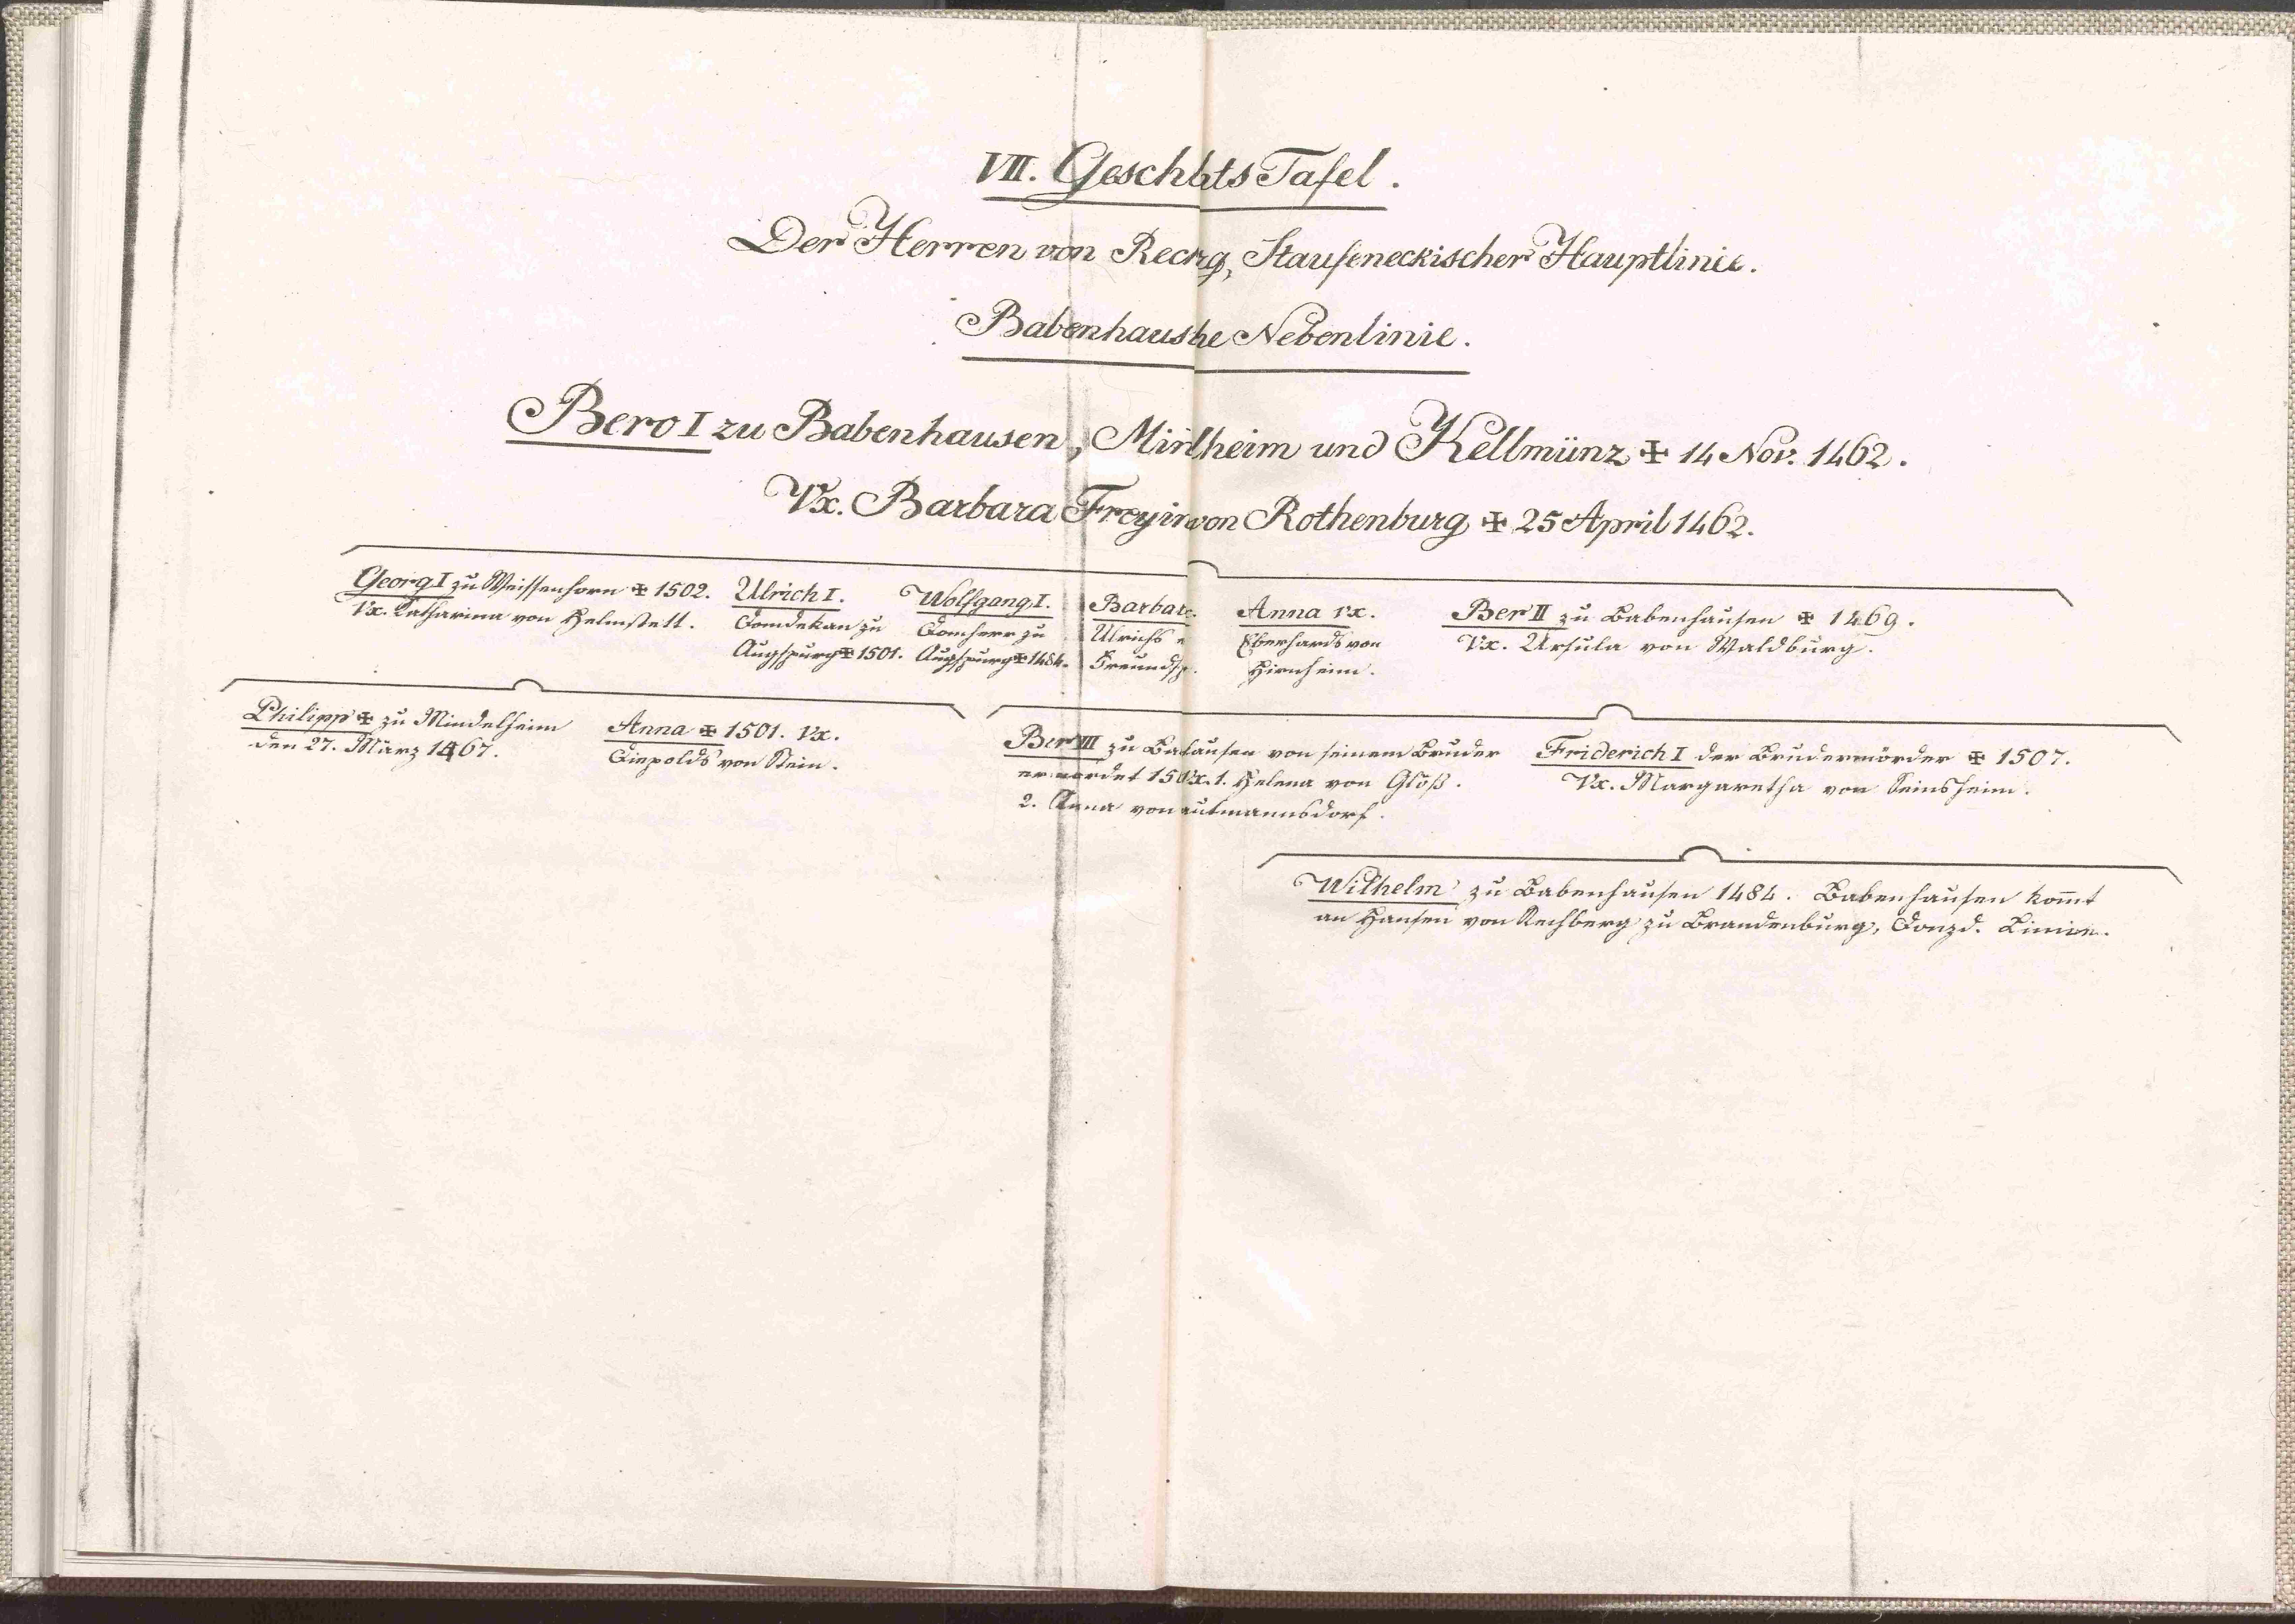 VII. Geschlts Tafel.
Der Herren von Recrg, Staufeneckischer Hauptlinie.
Babenhaushe Nebenlinie.
Bero I zu Babenhausen, Minlheim und Kellmünz ✠ 14 Nov. 1462.
Vx. Barbara Freyin von Rothenburg ✠ 25 April 1462.
Georg I zu Weissenhorn ✠ 1502.
Vx. Catharina von Helmstett.
Ulrich I.
Domdekan zu
Augspurg ✠ 1501.
Wolfgang I.
Domherr zu
Augspurg ✠ 1484.
Barbar
Ulrichs
Freundsp.
Anna vx.
Eberhards von
Hirnheim.
Ber II zu Babenhausen ✠ 1469.
Vx. Ursula von Waldburg.
Philipp ✠ zu Mindelheim
den 27. März 1467.
Anna ✠ 1501. Vx.
Diepolds von Stein.
Ber III zu Babausen von seinem Bruder
ermordet 150 Vx. 1. Helena von Gloß.
2. Anna von autmannsdorf.
Friderich I der Brudermörder ✠ 1507.
Vx. Margaretha von Seinsheim.
Wilhelm zu Babenhausen 1484. Babenhausen kom̄t
an Hansen von Rechberg zu Brandenburg, Donzd. Linie.